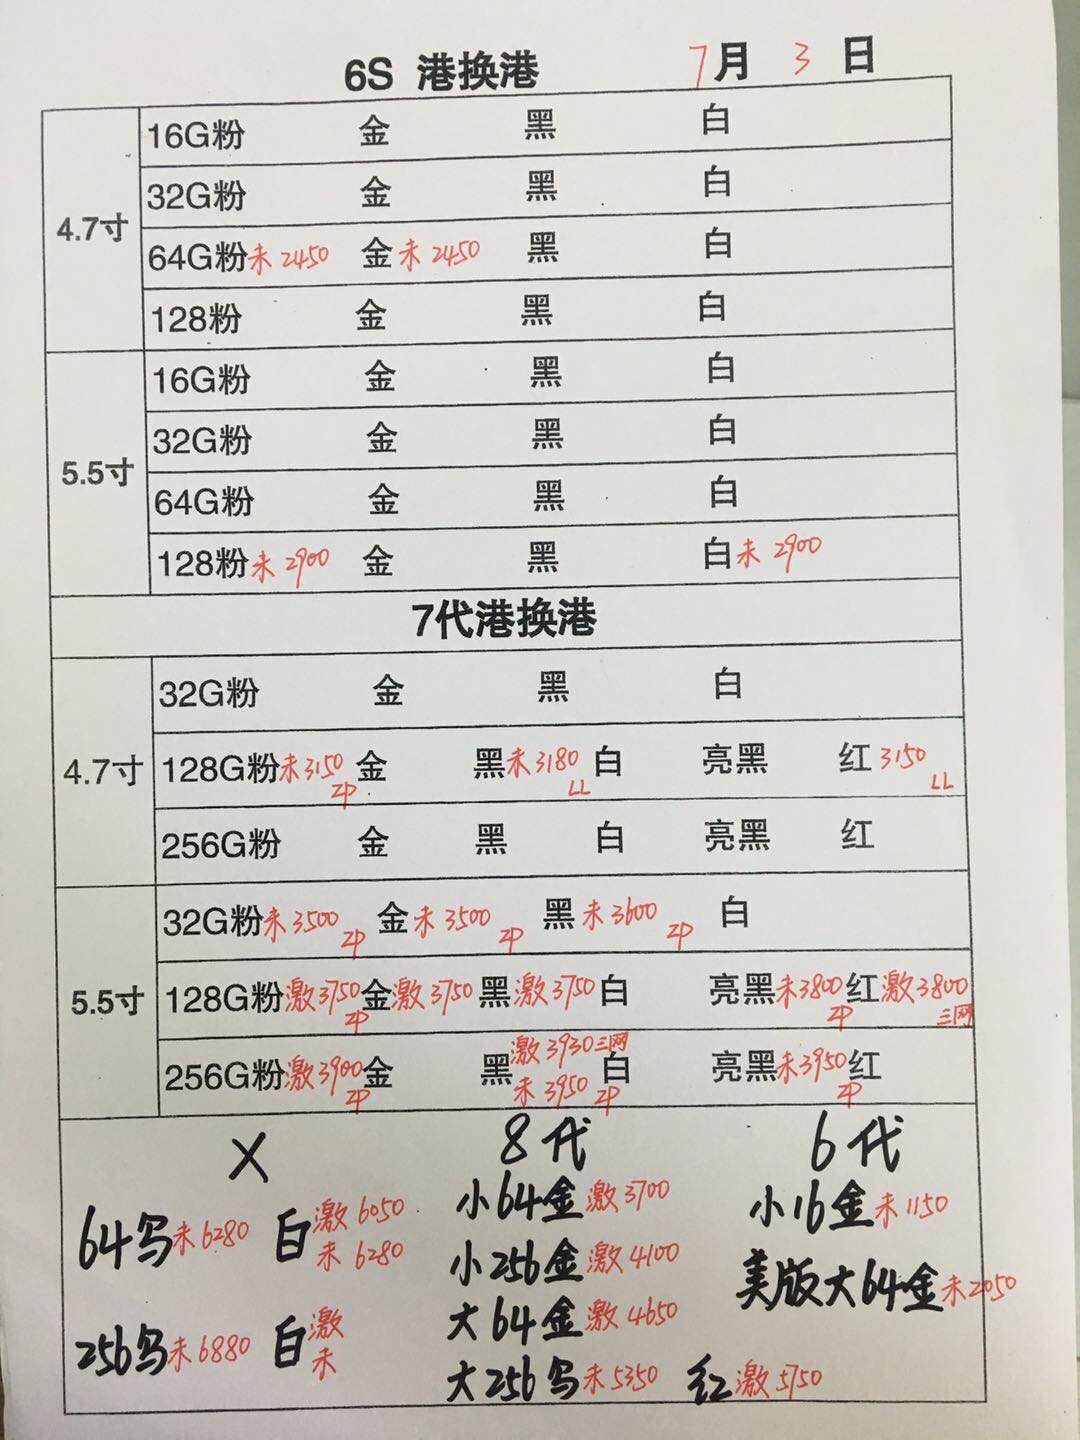 6S 港换港 7月 3 日
4.7寸
16G粉 金 黑 白
32G粉 金 黑 白
64G粉未2450 金未2450 黑 白
128粉 金 黑 白
5.5寸
16G粉 金 黑 白
32G粉 金 黑 白
64G粉 金 黑 白
128粉未2900 金 黑 白未2900
7代港换港
4.7寸
32G粉 金 黑 白
128G粉未3150 ZP 金 黑未3180 LL 白 亮黑 红3150 LL
256G粉 金 黑 白 亮黑 红
5.5寸
32G粉未3500 ZP 金未3500 ZP 黑未3600 ZP 白
128G粉激3750 ZP 金激3750 黑激3750 白 亮黑未3800 ZP 红激3800 三网
256G粉激3900 ZP 金 黑激3930三网 未3950 ZP 白 亮黑未3950 ZP 红
X 8代 6代
64乌未6280 白激6050 未6280
256乌未6880 白激 未
小64金激3700
小256金激4100
大64金激4650
大256乌未5350 红激5750
小16金未1150
美版大64金未2050